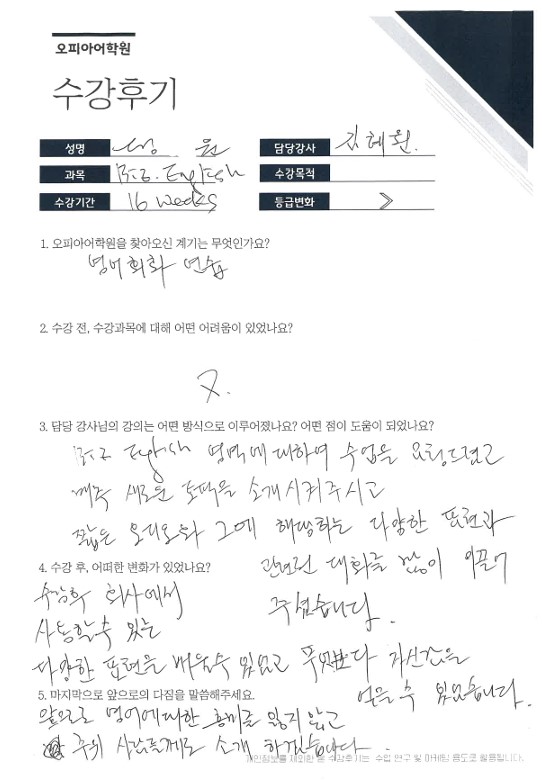 오피아어학원
수강후기
성명 원 담당강사 김혜원
과목 Biz. English 수강목적
수강기간 16 weeks 등급변화
1. 오피아어학원을 찾아오신 계기는 무엇인가요?
영어회화 연습
2. 수강 전, 수강과목에 대해 어떤 어려움이 있었나요?
X.
3. 담당 강사님의 강의는 어떤 방식으로 이루어졌나요? 어떤 점이 도움이 되었나요?
Biz English 영역에 대하여 수업을 요청드렸고
매주 새로운 토픽을 소개시켜주시고
짧은 오디오와 그에 해당하는 다양한 표현과
관련된 대화를 많이 이끌어
주셨습니다.
4. 수강 후, 어떠한 변화가 있었나요?
수강후 회사에서
사용할수 있는
다양한 표현을 배울수 있었고 무엇보다 자신감을
얻을 수 있었습니다.
5. 마지막으로 앞으로의 다짐을 말씀해주세요.
앞으로 영어에대한 흥미를 잃지 않고
주위 사람들께도 소개 하겠습니다.
개인정보를 제외한 본 수강후기는 수업 연구 및 마케팅 용도로 활용됩니다.